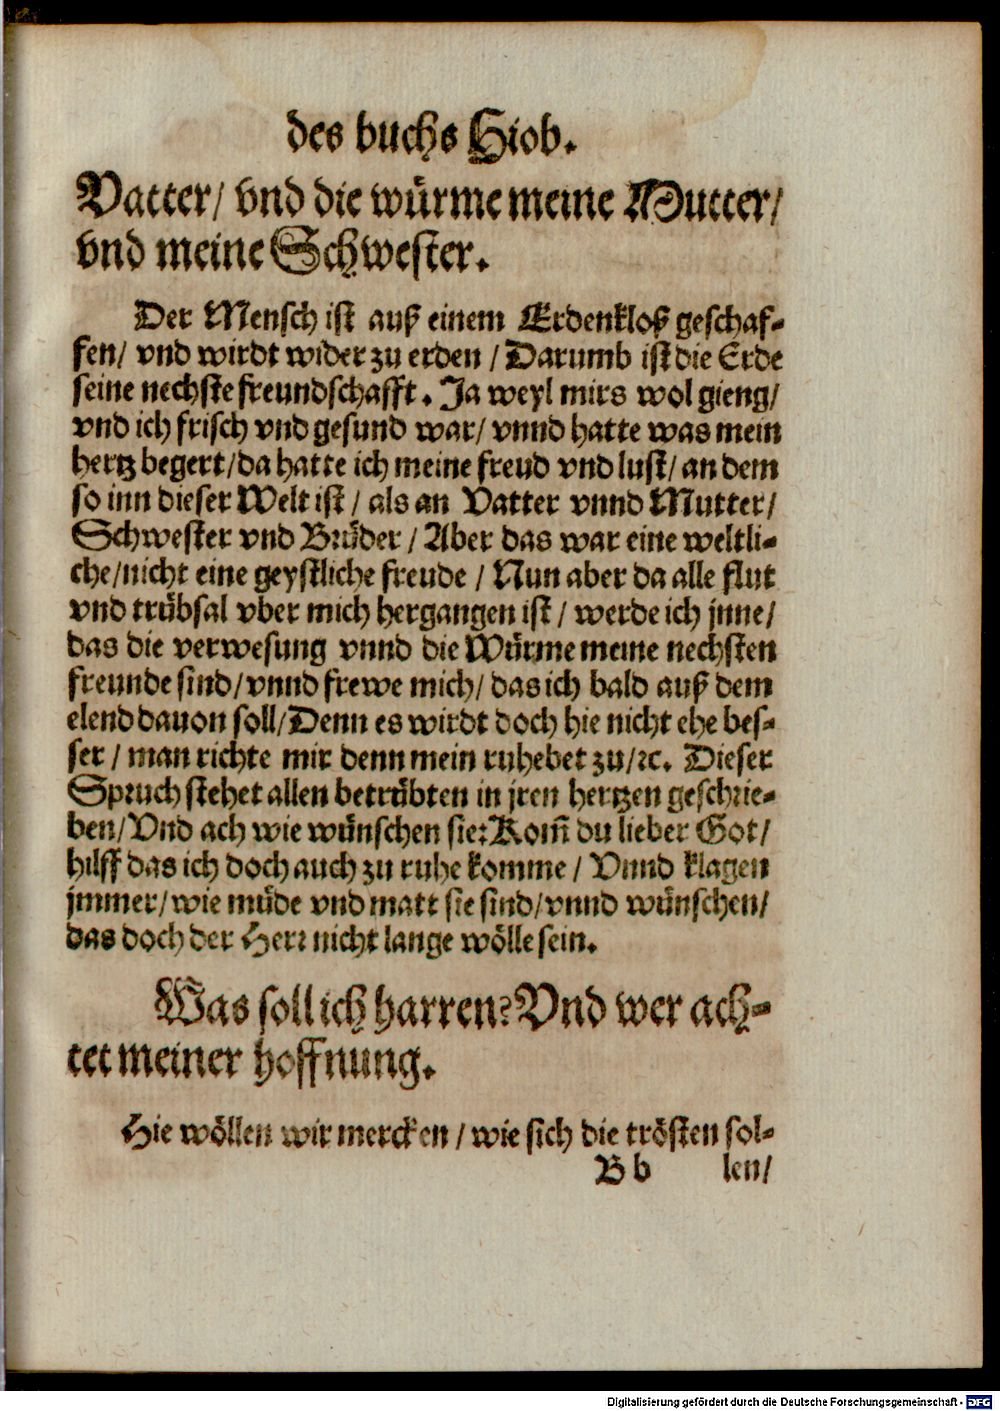 des buchs Hiob.
Vatter/ vnd die würme meine Mutter/
vnd meine Schwester.
Der Mensch ist auß einem Erdenkloß geschaf-
fen/ vnd wirdt wider zu erden / Darumb ist die Erde
seine nechste freundschafft. Ja weyl mirs wol gieng/
vnd ich frisch vnd gesund war/ vnnd hatte was mein
hertz begert/ da hatte ich meine freud vnd lust/ an dem
so inn dieser Welt ist / als an Vatter vnnd Mutter/
Schwester vnd Brüder / Aber das war eine weltli-
che/ nicht eine geystliche freude / Nun aber da alle flut
vnd trübsal vber mich hergangen ist / werde ich jnne/
das die verwesung vnnd die Würme meine nechsten
freunde sind/ vnnd frewe mich/ das ich bald auß dem
elend dauon soll/ Denn es wirdt doch hie nicht ehe bes-
ser / man richte mir denn mein ruhebet zu/ ꝛc. Dieser
Spruch stehet allen betrübten in jren hertzen geschrie-
ben/ Vnd ach wie wünschen sie: Kom̃ du lieber Got/
hilff das ich doch auch zu ruhe komme / Vnnd klagen
jmmer/ wie müde vnd matt sie sind/ vnnd wünschen/
das doch der Herr nicht lange wölle sein.
Was soll ich harren? Vnd wer ach-
tet meiner hoffnung.
Hie wöllen wir mercken / wie sich die trösten sol-
B b len/
Digitalisierung gefördert durch die Deutsche Forschungsgemeinschaft - DFG